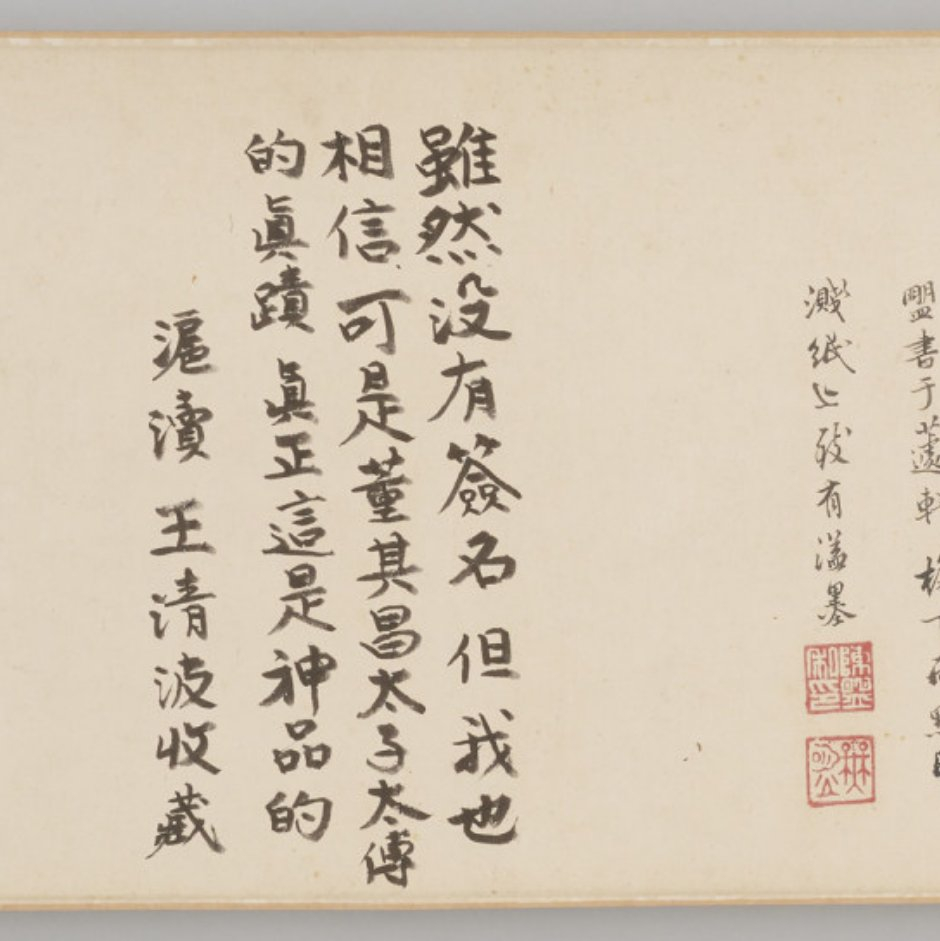 盟書于蘧軒
濺紙上致有瀋墨
雖然没有簽名但我也
相信可是董其昌太子太傅
的眞蹟眞正這是神品的
滬瀆王清波收藏